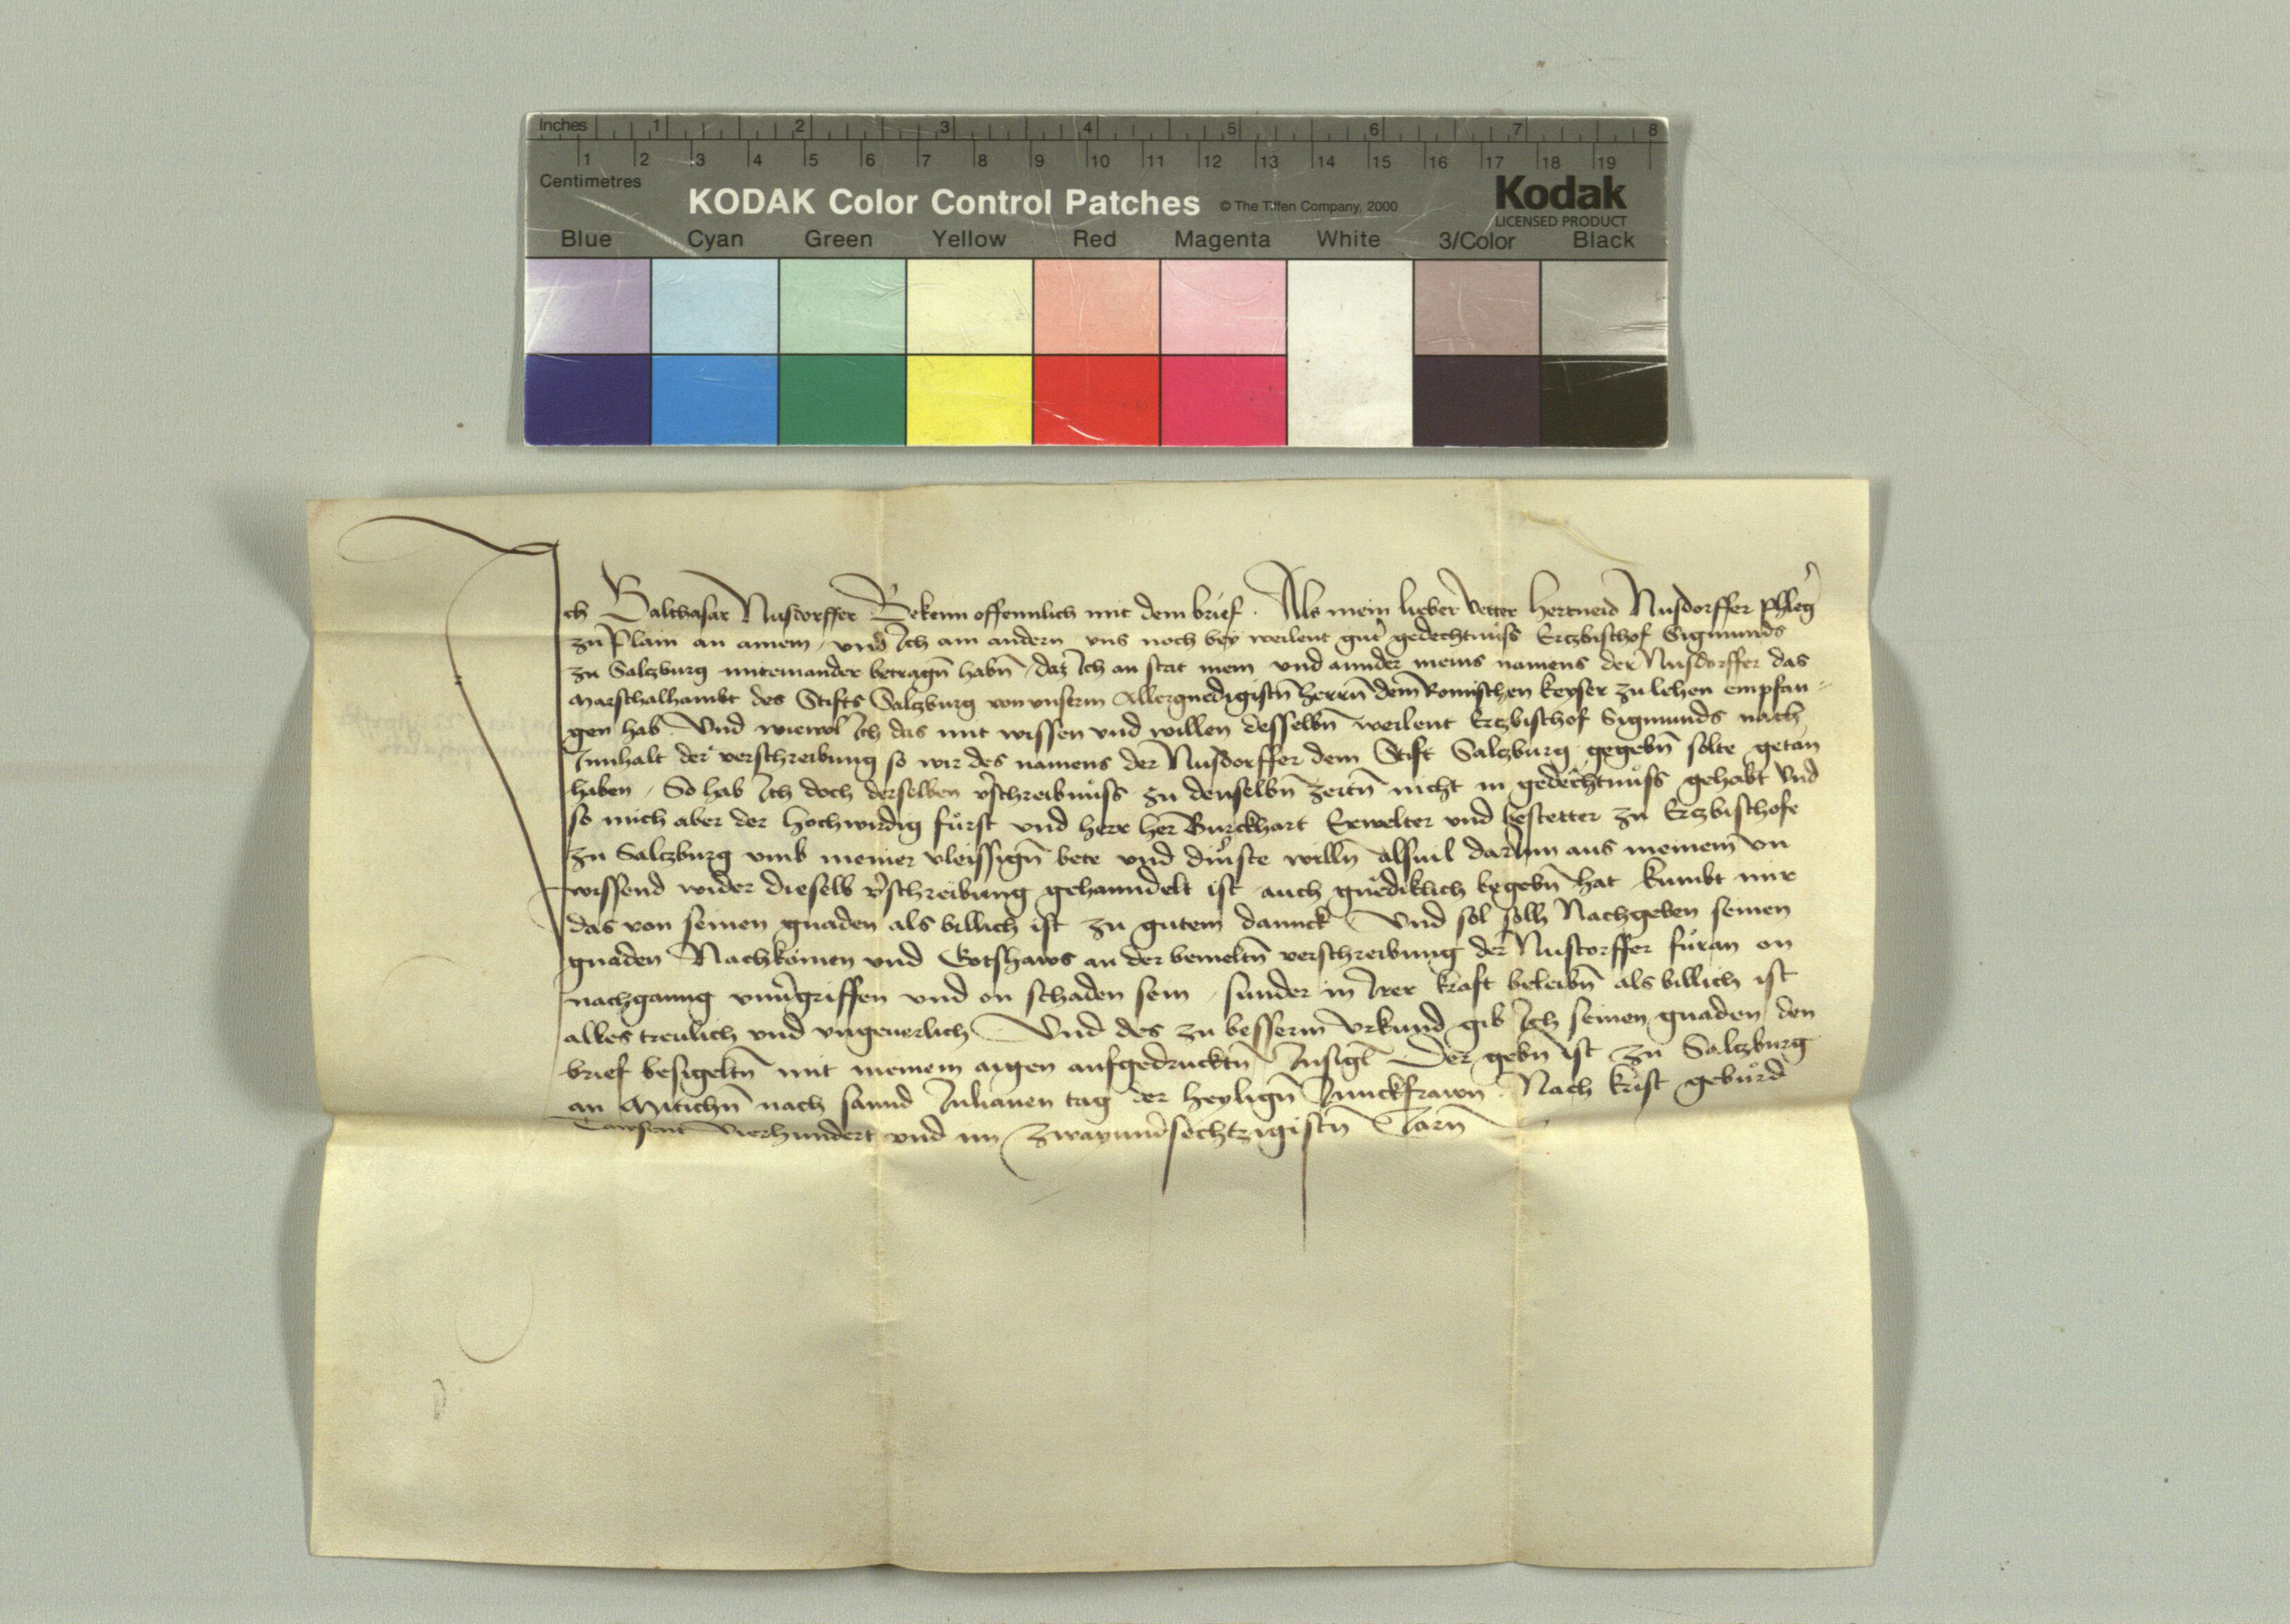 Inches 1 2 3 4 5 6 7 8
1 2 3 4 5 6 7 8 9 10 11 12 13 14 15 16 17 18 19
Centimetres
KODAK Color Control Patches © The Tiffen Company, 2000 Kodak
LICENSED PRODUCT
Blue Cyan Green Yellow Red Magenta White 3/Color Black
Ich Balthasar Nusdorffer Bekenn offennlich mit dem brief. Als mein lieber Vetter Hertneid Nusdorffer phleg̾
zu Plain an ainem, vnd Ich am andern vns noch bey weilent gut̾ gedechtnüss Ertzbischof Sigmunds
zu Salzburg miteinander betragn̄ habn̄, daz Ich an stat mein vnd annder meins namens der Nusdorffer das
Marschalhambt des Stifts Salzburg von vnserm Allergnedigistn̄ herrn̄ dem Romischen keyser zu lehen empfan=
gen hab. Vnd wiewol Ich das mit wissen vnd willen desselbn̄ weilent Ertzbischof Sigmunds nach
Innhalt der verschreibung so wir des namens der Nusdorffer dem Stift Salzburg gegebn̄ solte getan
haben, So hab Ich doch derselben v̾schreibnüss zu denselbn̄ zeitn̄ nicht in gedechtnüss gehabt Vnd
so mich aber der hochwirdig fürst vnd herr her Burckhart Erwelter vnd bestetter zu Ertzbischofe
zu Salczburg vmb meiner vleissign̄ bete vnd dinste willn̄ alsuil darinn aus meinem vn
wissend wider dieselb v̾schreibung gehanndelt ist auch gnediklich begebn̄ hat kumbt mir
das von seinen gnaden als billich ist zu gutem dannck Vnd sol solh Nachgeben seinen
gnaden Nachkomen vnd Gotshaws an der bemeltn̄ verschreibung der Nustorffer füran on
nachganng vnu̾griffen vnd on schaden sein, sunder in Irer kraft beleibn̄ als billich ist
alles treulich vnd vngeuerlich Vnd des zu besserm Vrkund gib Ich seinen gnaden den
brief besigeltn̄ mit meinem aigen aufgedrucktn̄ Insigl Der gebn̄ ist zu Salczburg
an Mitichn̄ nach sannd Julianen tag der heylign̄ Junckfrawn̄. Nach krist gebürd
Tawsent vierhundert vnd im zwayundsechtzigistn̄ Jarn̄